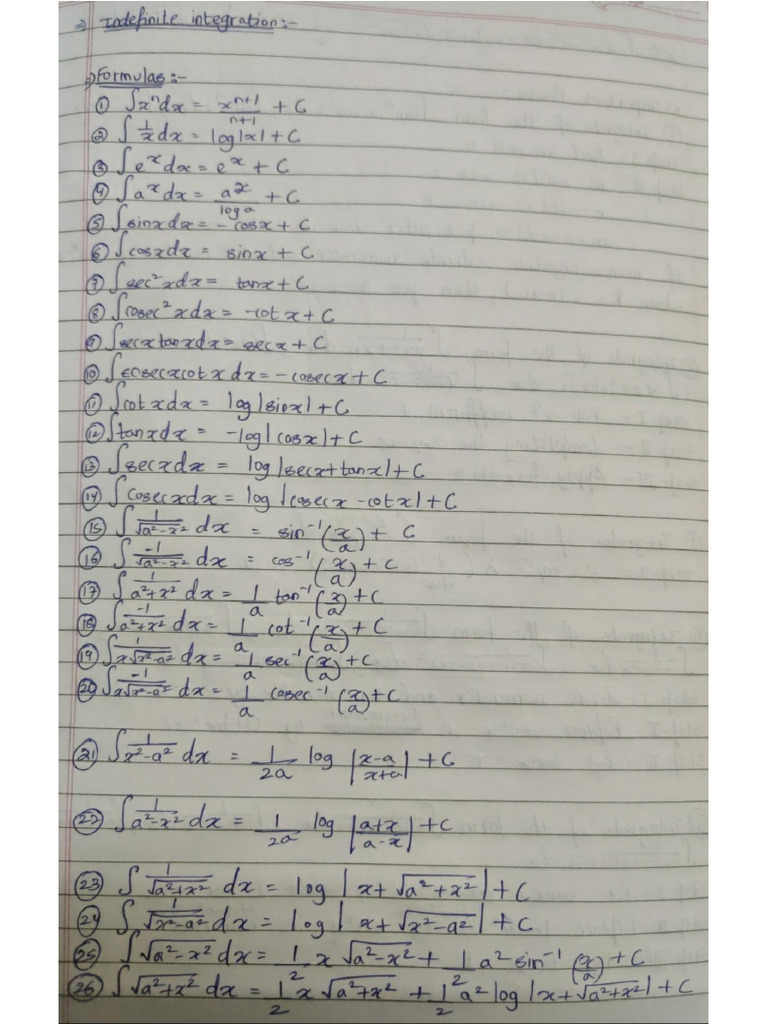 ⇒ Indefinite integration:-
⇒ Formulas:-
① ∫xⁿdx = xⁿ⁺¹/n+1 + C
② ∫1/x dx = log|x| + C
③ ∫eˣdx = eˣ + C
④ ∫aˣdx = aˣ/log a + C
⑤ ∫sinxdx = -cosx + C
⑥ ∫cosxdx = sinx + C
⑦ ∫sec²xdx = tanx + C
⑧ ∫cosec²xdx = -cotx + C
⑨ ∫secxtanxdx = secx + C
⑩ ∫cosecxcotxdx = -cosecx + C
⑪ ∫cotxdx = log|sinx| + C
⑫ ∫tanxdx = -log|cosx| + C
⑬ ∫secxdx = log|secx+tanx| + C
⑭ ∫cosecxdx = log|cosecx - cotx| + C
⑮ ∫1/√a²-x² dx = sin⁻¹(x/a) + C
⑯ ∫-1/√a²-x² dx = cos⁻¹(x/a) + C
⑰ ∫1/a²+x² dx = 1/a tan⁻¹(x/a) + C
⑱ ∫-1/a²+x² dx = 1/a cot⁻¹(x/a) + C
⑲ ∫1/x√x²-a² dx = 1/a sec⁻¹(x/a) + C
⑳ ∫-1/x√x²-a² dx = 1/a cosec⁻¹(x/a) + C
㉑ ∫1/x²-a² dx = 1/2a log |x-a/x+a| + C
㉒ ∫1/a²-x² dx = 1/2a log |a+x/a-x| + C
㉓ ∫1/√a²+x² dx = log |x+√a²+x²| + C
㉔ ∫1/√x²-a² dx = log |x+√x²-a²| + C
㉕ ∫√a²-x² dx = 1/2 x √a²-x² + 1/2 a² sin⁻¹(x/a) + C
㉖ ∫√a²+x² dx = 1/2 x √a²+x² + 1/2 a² log|x+√a²+x²| + C